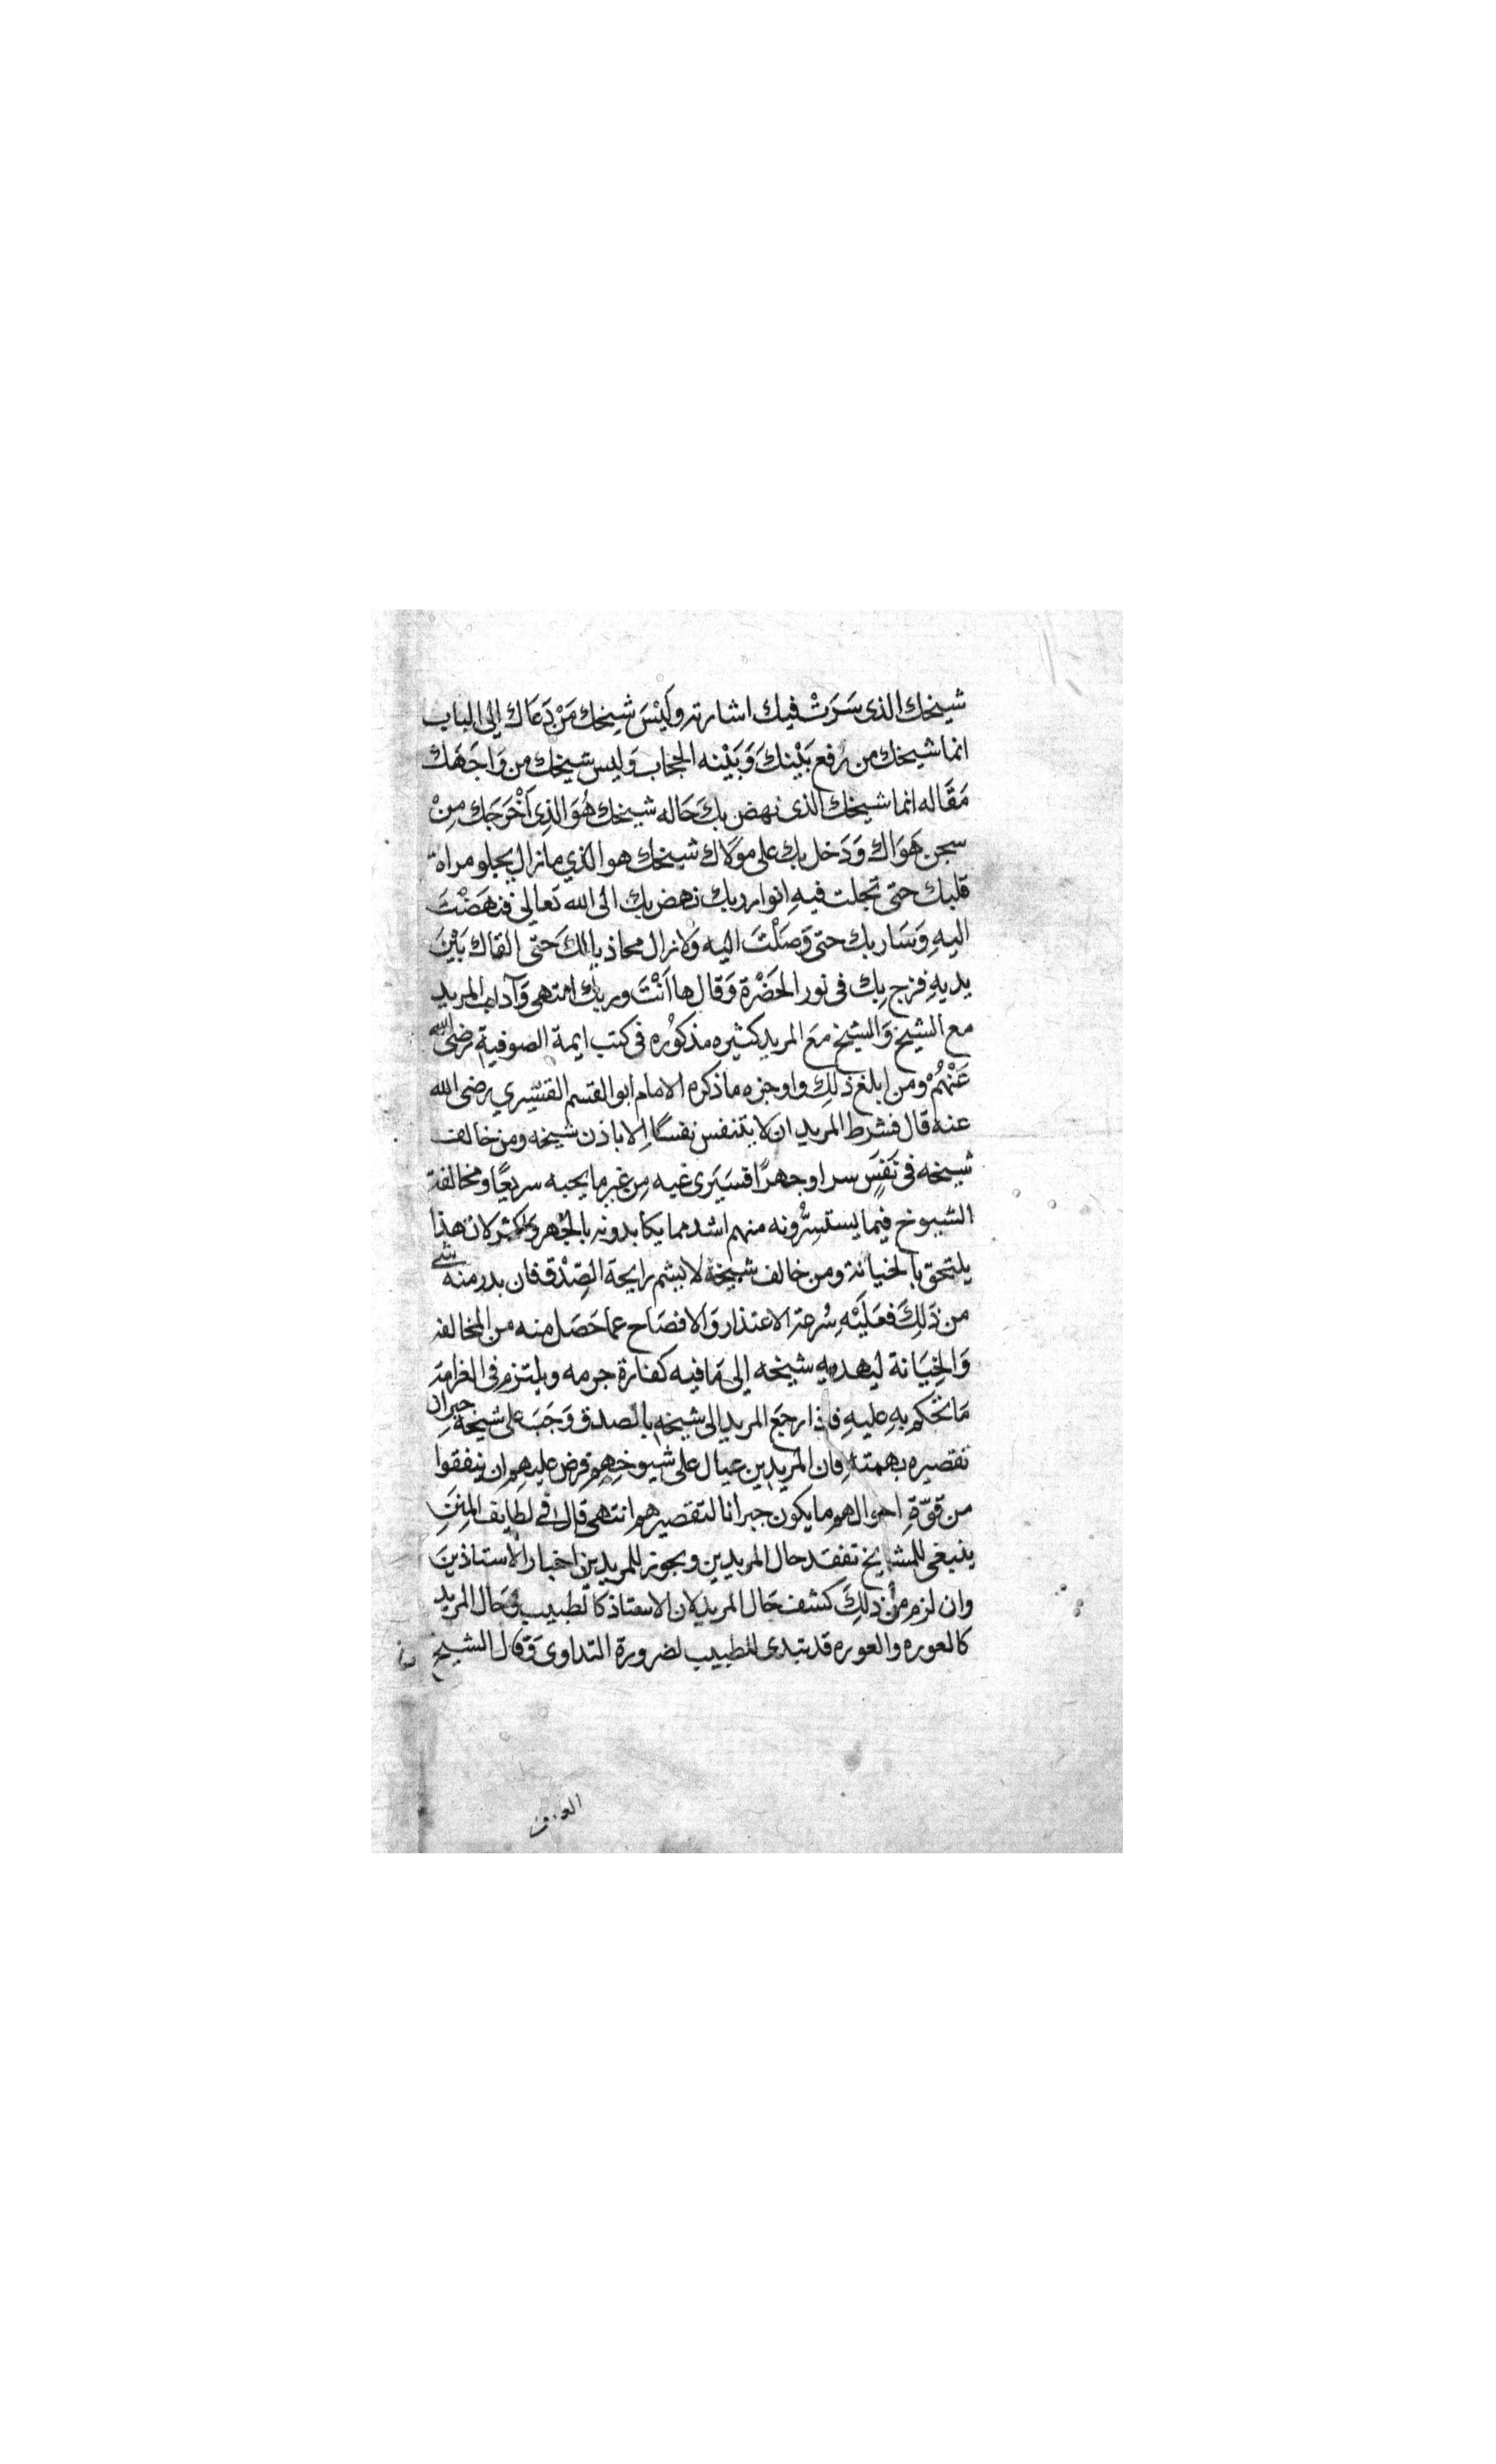 شيخك الذى سَرَتْ فيك اشارته وَلَيْسَ شيخك مَنْ دَعَاك إلى الباب
انما شيخك من رُفع بَيْنك وَبَيْنه الحجاب وَليس شيخك من وَاجَهَك
مَقَاله انما شيخك الذى نهض بك حَاله شيخك هُوَ الذِى اَخْرَجَك مِنْ
سجن هَوَاك وَدَخل بك على مَولَاك شيخك هو الذي مازال يجلو مراة
قلبك حتى تجلت فيهِ انوار ربك نهض بك الى الله تعالى فنهَضْتَ
اليهِ وَسَار بك حتى وَصَلْتَ اليه وَلازال محاذيا لك حَتى القاك بَيْنَ
يديهِ فزج بِك فى نور الحَضْرة وَقال ها اَنْتَ وربك انتهى وَآداب المريد
مع الشيخ وَالشيخ مَعَ المريد كثيره مذكوُره فى كتب ايمة الصوفية رضى الله
عَنْهُمْ ومن ابلغ ذلِك واوجزه ماذكره الامام ابو القسم القشيري رضى الله
عنه قال فشرط المريد ان لا يتنفس نفسًا الا باذن شيخه ومن خالف
شيخه فى نَفَسٍ سرا وجهرًا فسَيَرى غيه مِن غير ما يحبه سريعًا ومخالفة
الشيوخ فيما يستسِرُّونه منهم اشد مما يكابدونه بالجهر واكثر لان هذا
يلتحق بالخيانة ومن خالف شيخه لا يشم رايحة الصِّدْق فان بدر منه شئ
من ذَلِكَ فعَلَيْهِ سُرعة الاعتذار وَالافصَاح عما حَصَل منه من المخالفة
وَالخِيَانة ليهديه شيخه إلى مَا فيه كفارة جرمه ويلتزم فى الغرامة
مَا يحكم بهِ عليهِ فاذا رجَعَ المريد الى شيخه بالصدق وَجَبَ على شيخه جبران
تقصيره بهمته فان المريدين عيال على شيوخِهِم فرض عليهم ان ينفقوا
من قوّةِ احوالهم ما يكون جبرانا لتقصيرهم انتهى قال فى لطايف المِنَنِ
ينبغى للمشايخ تفقد حال المريدين ويجوز للمريدين اخبار الاستاذين
وان لزم من ذلِكَ كشف حَال المريد لان الاستاذ كالطبيب وَحَال المريد
كالعوره والعوره قد تبدى للطبيب لضرورة التداوى وَقَال الشيخ